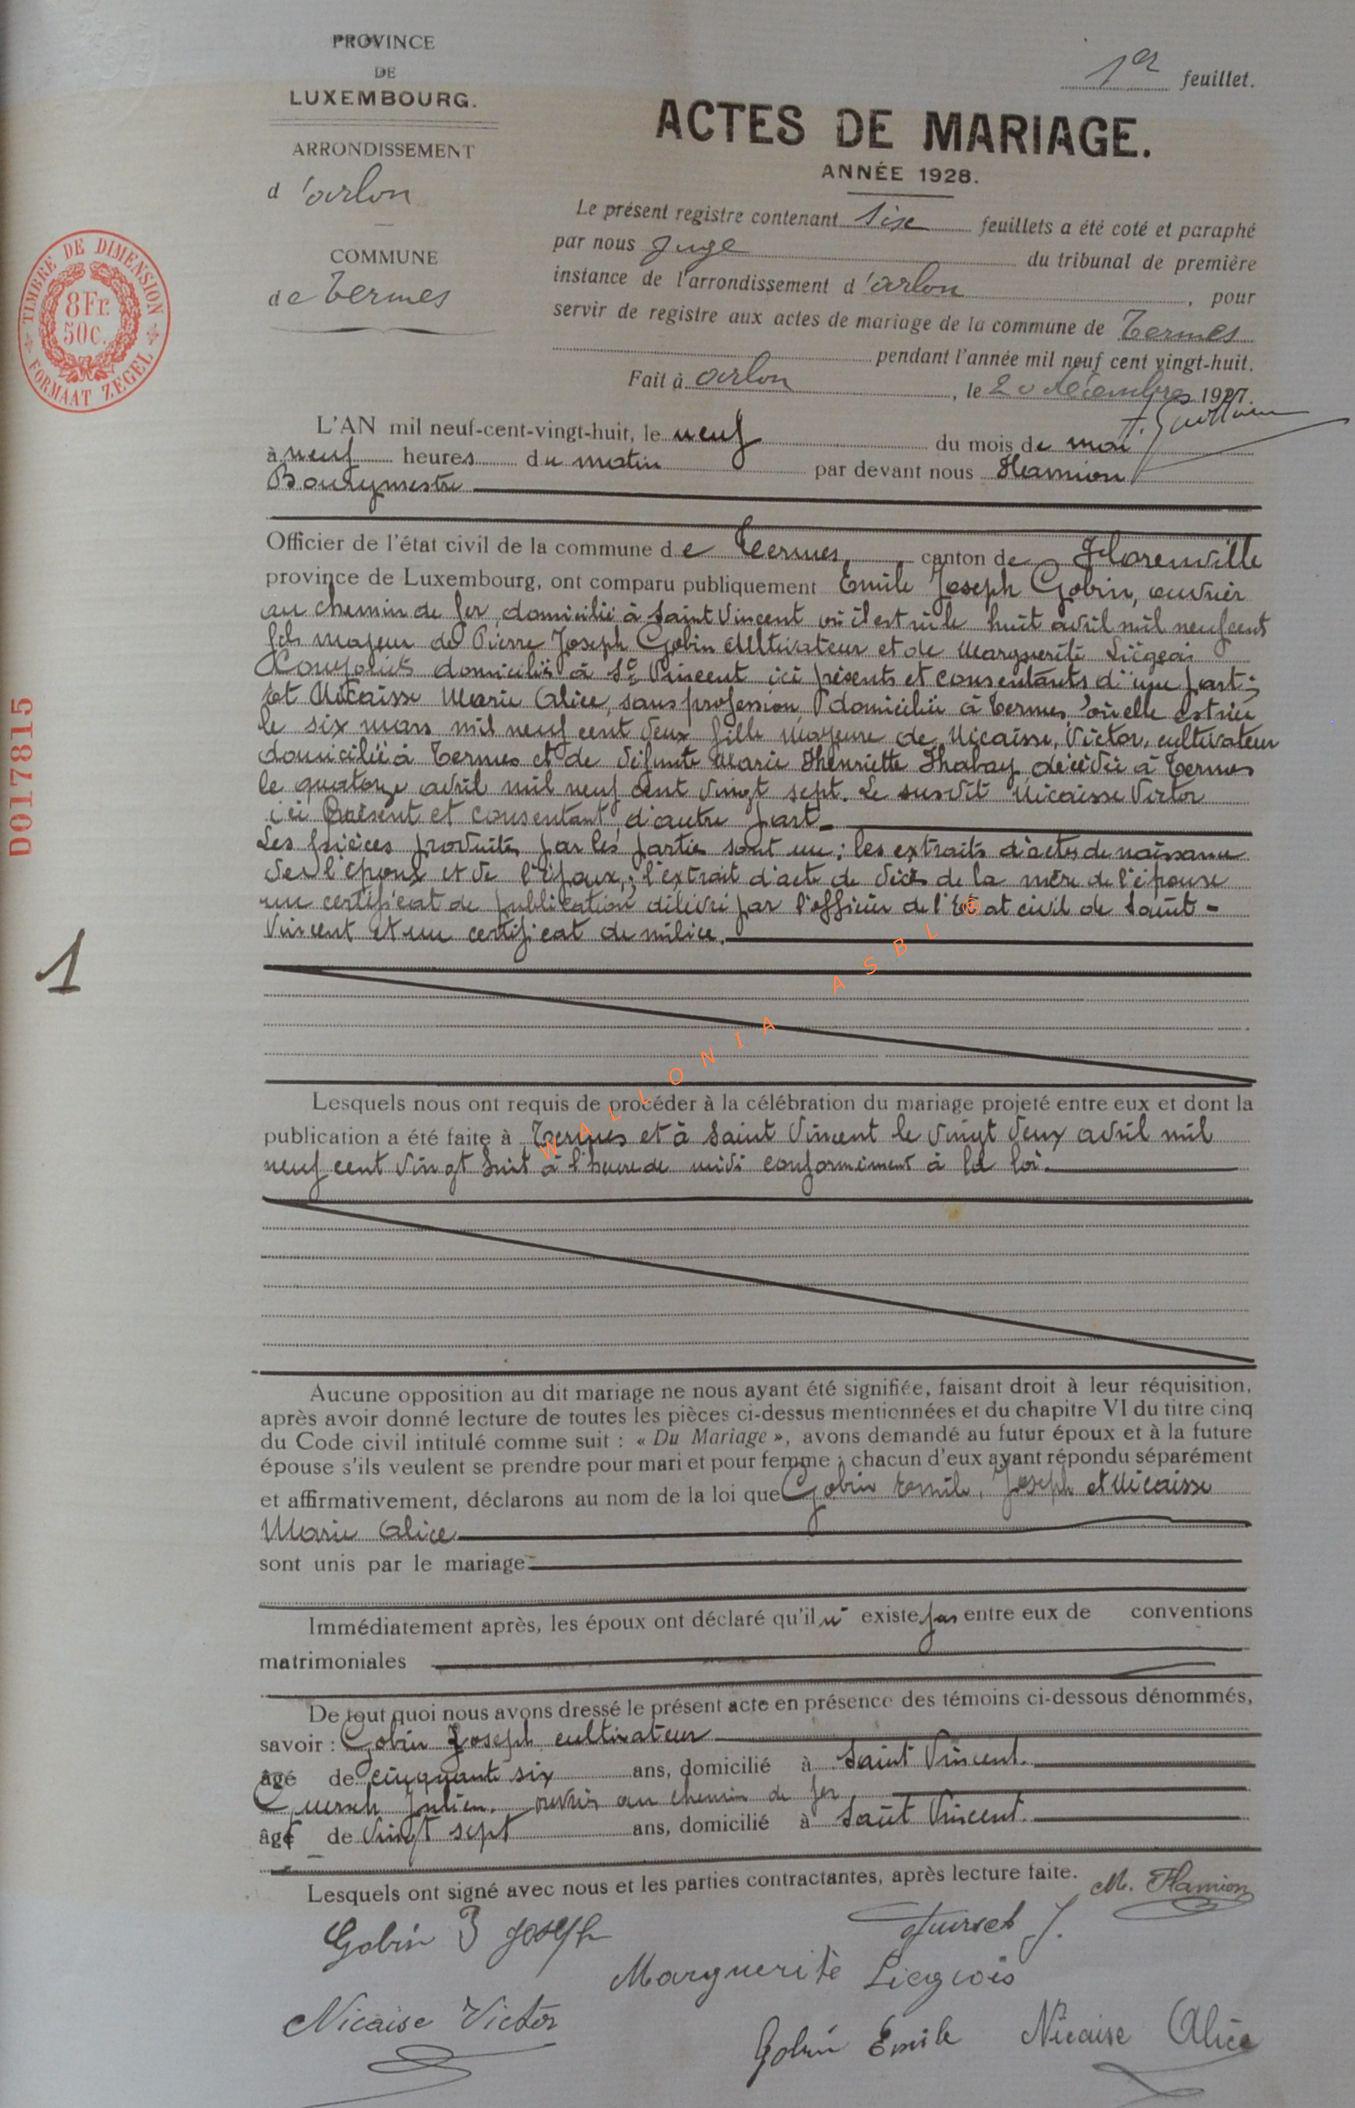 PROVINCE
DE
LUXEMBOURG.
ARRONDISSEMENT
d'arlon
COMMUNE
de Termes
1er feuillet.
ACTES DE MARIAGE.
ANNÉE 1928.
Le présent registre contenant six feuillets a été coté et paraphé
par nous Juge du tribunal de première
instance de l'arrondissement d'arlon, pour
servir de registre aux actes de mariage de la commune de Termes
pendant l'année mil neuf cent vingt-huit.
Fait à arlon, le 20 décembre 1927.
TIMBRE DE DIMENSION
8Fr.
50c.
FORMAAT ZEGEL
D017815
1
L'AN mil neuf-cent-vingt-huit, le neuf du mois de mai
à neuf heures du matin par devant nous Hamion
Bourgmestre
Officier de l'état civil de la commune de Termes canton de Florenville
province de Luxembourg, ont comparu publiquement Emile Joseph Gobin, ouvrier
au chemin de fer, domicilié à Saint Vincent où il est né le huit avril mil neuf cent
fils majeur de Pierre Joseph Gobin cultivateur et de Marguerite Liégeois
domiciliés à St Vincent ici présents et consentants d'une part;
et Nicaisse Marie Alice, sans profession domiciliée à Termes où elle est née
le six mars mil neuf cent deux fille majeure de Nicaisse, Victor, cultivateur
domicilié à Termes et de défunte Marie Henriette Habay décédée à Termes
le quatorze avril mil neuf cent vingt sept. Le susdit Nicaisse Victor
ici présent et consentant d'autre part.
Les pièces produites par les parties sont un: les extraits d'actes de naissance
de l'époux et de l'épouse; l'extrait d'acte de décès de la mère de l'épouse
un certificat de publication délivré par l'officier de l'Etat civil de Saint-
Vincent et un certificat de milice.
WALLONIA ASBL ®
Lesquels nous ont requis de procéder à la célébration du mariage projeté entre eux et dont la
publication a été faite à Termes et à Saint Vincent le vingt deux avril mil
neuf cent vingt huit à l'heure de midi conformément à la loi.
Aucune opposition au dit mariage ne nous ayant été signifiée, faisant droit à leur réquisition,
après avoir donné lecture de toutes les pièces ci-dessus mentionnées et du chapitre VI du titre cinq
du Code civil intitulé comme suit : « Du Mariage », avons demandé au futur époux et à la future
épouse s'ils veulent se prendre pour mari et pour femme ; chacun d'eux ayant répondu séparément
et affirmativement, déclarons au nom de la loi que Gobin Emile, Joseph et Nicaisse
Marie Alice
sont unis par le mariage
Immédiatement après, les époux ont déclaré qu'il n'existe pas entre eux de conventions
matrimoniales
De tout quoi nous avons dressé le présent acte en présence des témoins ci-dessous dénommés,
savoir : Gobin Joseph cultivateur
âgé de cinquante six ans, domicilié à Saint Vincent.
Julien, ouvrier au chemin de fer
âgé de vingt sept ans, domicilié à Saint Vincent.
Lesquels ont signé avec nous et les parties contractantes, après lecture faite. M. Hamion
Gobin Joseph
J.
Marguerite Liegeois
Nicaise Victor
Gobin Emile Nicaise Alice